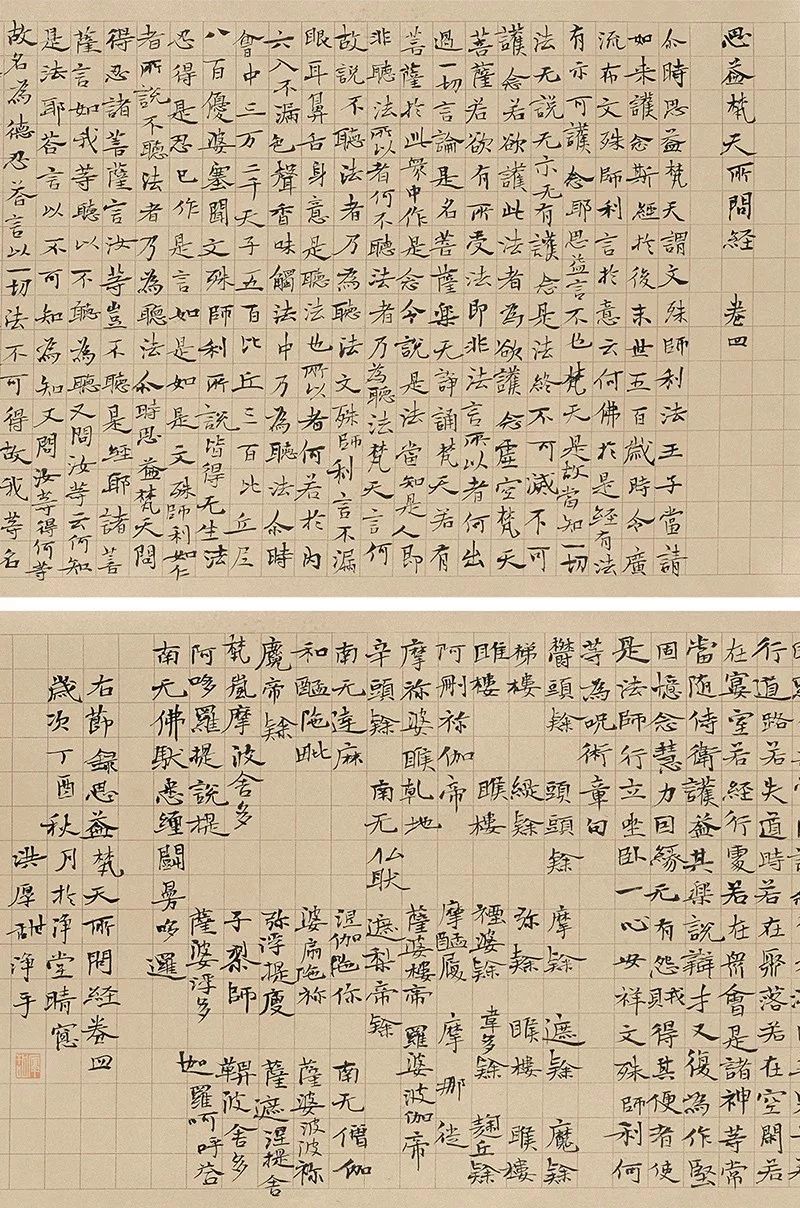 思益梵天所問経 卷四
尒時思益梵天謂文殊師利法王子當請
如来護念斯經扵後末世五百歲時令廣
流布文殊師利言扵意云何佛扵是経有法
有示可護念耶思益言不也梵天是故當知一切
法无說无示无有護念是法終不可滅不可
護念若欲護此法者為欲護念虛空梵天
菩薩若欲有所受法即非法言所以者何出
過一切言論是名菩薩樂无諍誦梵天若有
菩薩扵此衆中作是念今說是法當知是人即
非聽法所以者何不聽法者乃為聽法梵天言何
故說不聽法者乃為聽法文殊師利言不漏
眼耳鼻舌身意是聽法也所以者何若扵內
六入不漏色聲香味觸法中乃為聽法尒時
會中三万二千天子五百比丘三百比丘尼
八百優婆塞聞文殊師利所說皆得无生法
忍得是忍已作是言如是如是文殊師利如仁
者所說不聽法者乃為聽法尒時思益梵天問
得忍諸菩薩言汝等豈不聽是経耶諸菩
薩言如我等聽以不聽為聽又問汝等云何知
是法耶荅言以不可知為知又問汝等得何等
故名為德忍荅言以一切法不可得故我等名
行道路若失道時若在聚落若在空閑若
在宴室若経行處若在衆會是諸神等常
當随侍衛護益其樂說辯才又復為作堅
固憶念慧力因緣无有怨賊得其便者使
是法師行立坐卧一心安祥文殊師利何
等為呪術章句
欝頭隸 頭頭隸 摩隸 遮隸 魔隸
梯樓 緹隸 弥隸 睺樓 睺樓
睢樓 睺樓 婆隸 韋多隸 麹丘隸
阿刪祢伽帝 摩醯履 摩那徙
摩祢婆睺乾地 薩婆樓帝 羅婆波伽帝
辛頭隸 南无仏馱 遮梨帝隸
南无達麻 涅伽陁你 南无僧伽
和醯陁毗 婆扇陁祢 薩婆波波祢
魔帝隸 弥浮提履 薩遮涅提舍
梵嵐摩波舍多 子梨師 鞞波舍多
阿哆羅提說提 薩婆浮多 伽羅呵呼荅
南无佛馱悉纏鬪曼哆邏
右節錄思益梵天所問経卷四
歲次丁酉秋月扵浄堂晴窗
洪厚甜浄手